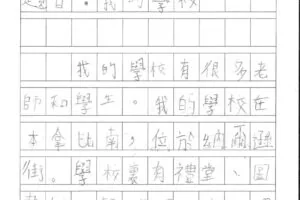 題目：我的學校
我的學校有很多老
師和學生。我的學校在
本拿比南，位於納爾遜
街。學校裏有禮堂、圖